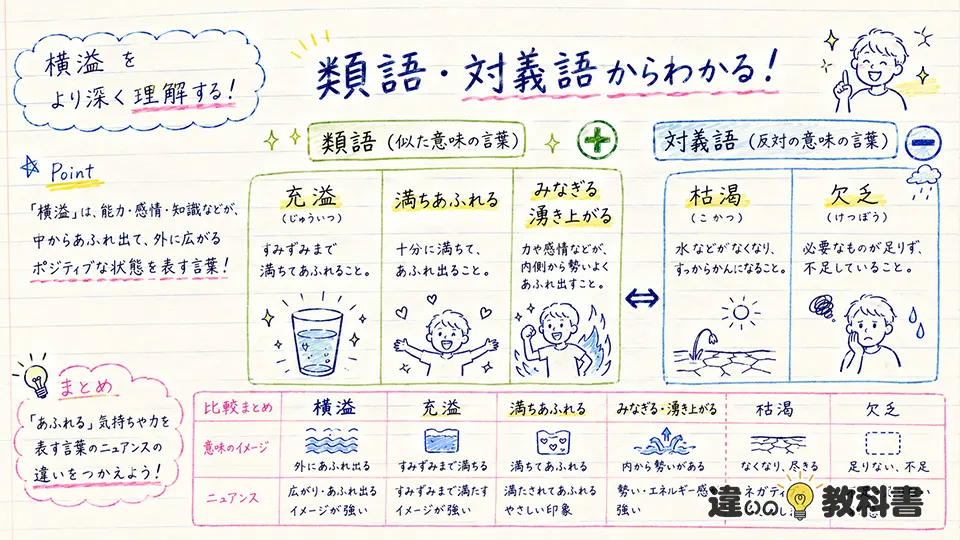 横溢を
より深く理解する！
類語・対義語からわかる！
Point
「横溢」は、能力・感情・知識などが、
中からあふれ出て、外に広がる
ポジティブな状態を表す言葉！
類語（似た意味の言葉）
充溢
（じゅういつ）
すみずみまで
満ちてあふれること。
満ちあふれる
十分に満ちて、
あふれ出ること。
みなぎる
湧き上がる
力や感情などが、
内側から勢いよく
あふれ出すこと。
対義語（反対の意味の言葉）
枯渇
（こかつ）
水などがなくなり、
すっからかんになること。
欠乏
（けつぼう）
必要なものが足りず、
不足していること。
まとめ
「あふれる」気持ちや力を
表す言葉のニュアンスの
違いをつかえよう！
比較まとめ 横溢 充溢 満ちあふれる みなぎる・湧き上がる 枯渇 欠乏
意味のイメージ 外にあふれ出る すみずみまで満ちる 満ちてあふれる 内から勢いがある なくなり、尽きる 足りない、不足
ニュアンス 広がり・あふれ出る すみずみまで満たす 満たされてあふれる 勢い・エネルギー感 ネガティ
イメージが強い イメージが強い やさしい印象 強い
違いの教科書